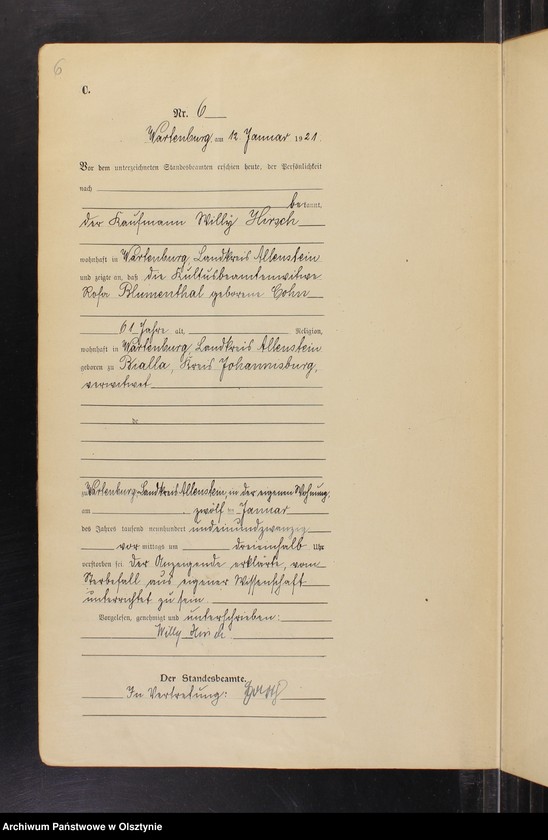 6
C.
Nr. 6
Wartenburg am 12 Januar 1921.
Vor dem unterzeichneten Standesbeamten erschien heute, der Persönlichkeit
nach
bekannt,
der Kaufmann Willy Hirsch
wohnhaft in Wartenburg, Landkreis Allenstein
und zeigte an, daß die Kultusbeamtenwitwe
Rosa Blumenthal geborene Cohn
61 Jahre alt, Religion,
wohnhaft in Wartenburg, Landkreis Allenstein
geboren zu Bialla, Kreis Johannisburg,
verwitwet
de
zu Wartenburg, Landkreis Allenstein, in der eigenen Wohnung,
am zwölf ten Januar
des Jahres tausend neunhundert undeinundzwanzig
vor mittags um dreieinhalb Uhr
verstorben sei. Der Anzeigende erklärte, vom
Sterbefall aus eigener Wissenschaft
unterrichtet zu sein.
Vorgelesen, genehmigt und unterschrieben:
Willy Hirsch
Der Standesbeamte.
In Vertretung:
Archiwum Państwowe w Olsztynie